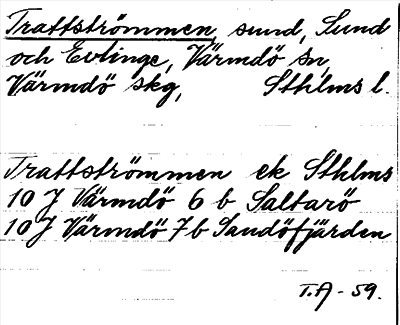 Trattströmmen sund, Sund
och Evlinge, Värmdö sn,
Värmdö skg, Sthlms l.
Trattströmmen ek Sthlms
10 J Värmdö 6 b Saltarö
10 J Värmdö 7 b Sandöfjärden
T.A - 59.